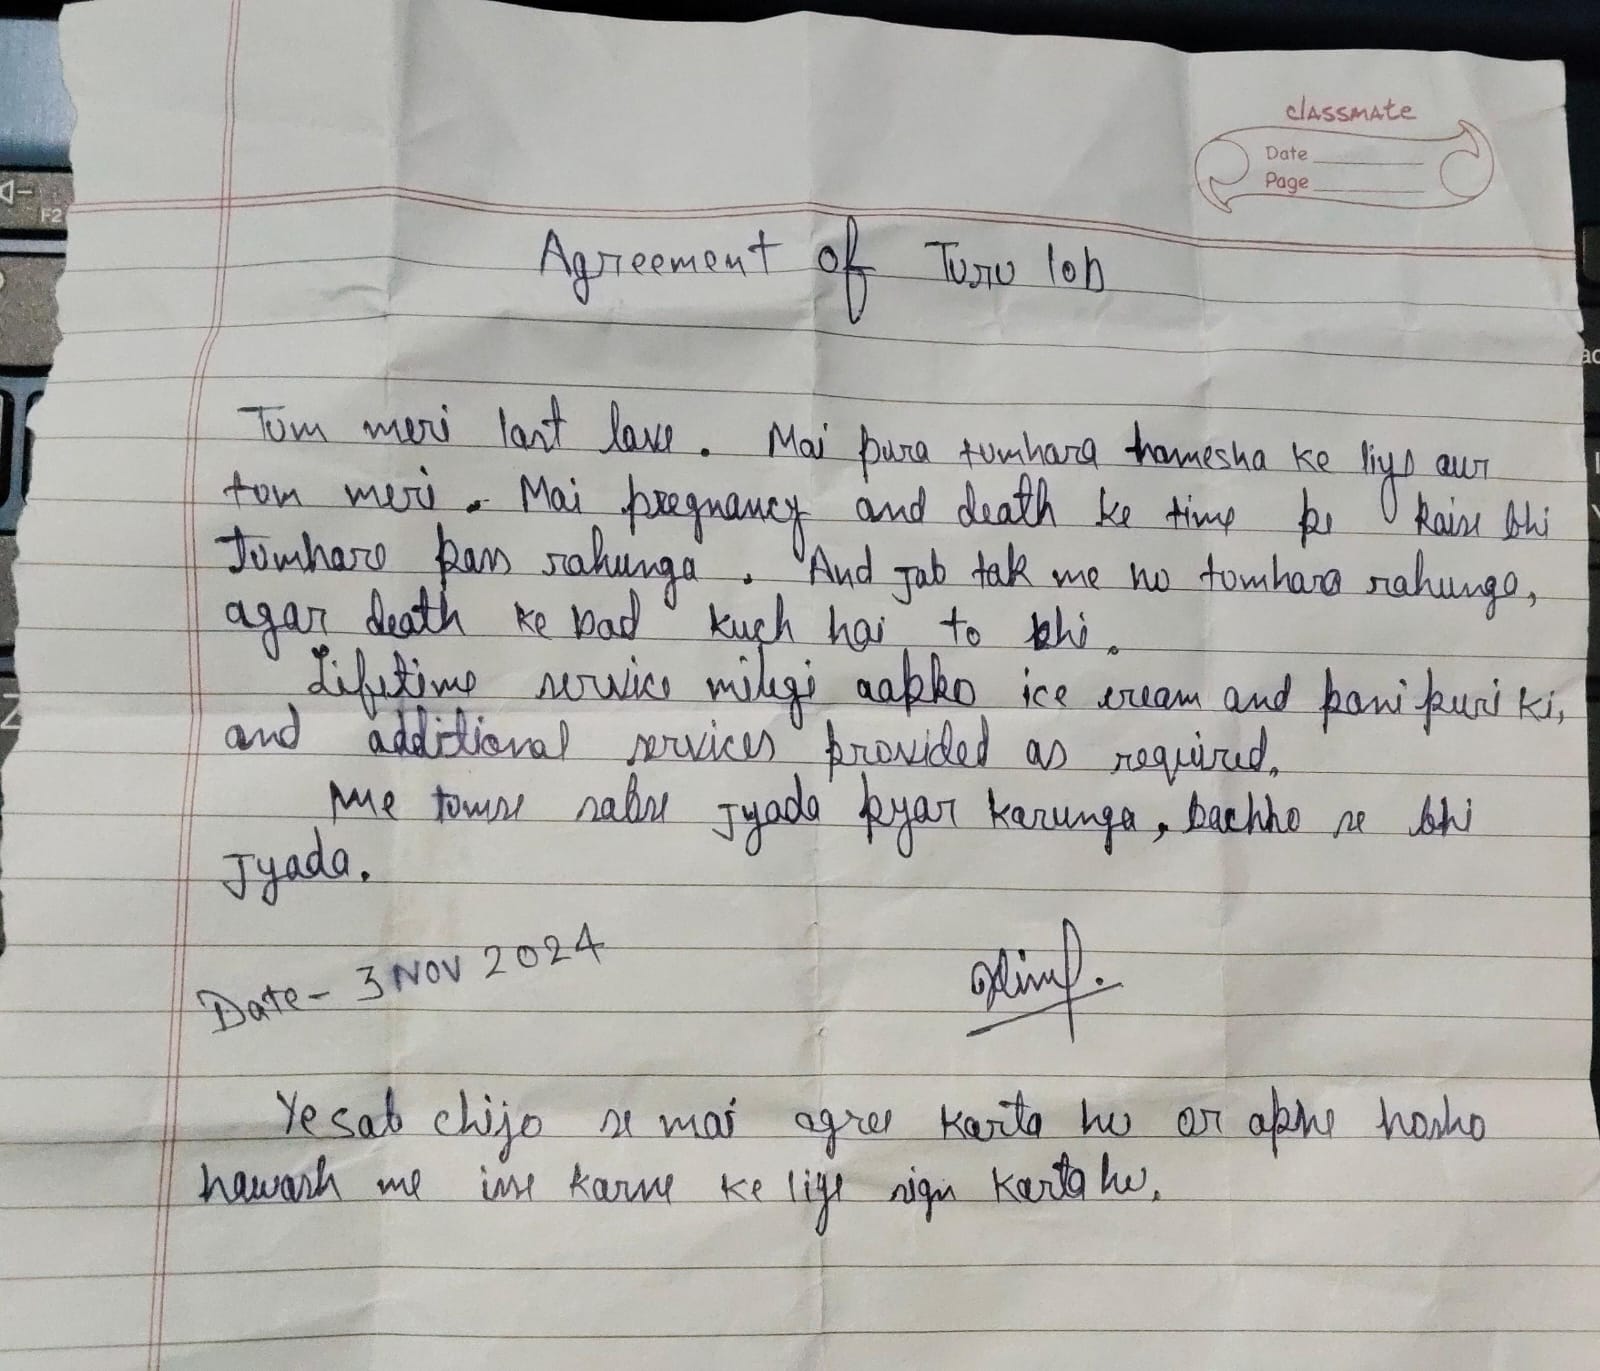 classmate
Date
Page
Agreement of Turu lob
Tum meri last love. Mai pura tumhara hamesha ke liye aur
tum meri. Mai pregnancy and death ke time pe kaise bhi
tumhare pass rahunga. And jab tak me hu tumhara rahunga,
agar death ke bad kuch hai to bhi.
Lifetime service milegi aapko ice cream and pani puri ki,
and additional services provided as required.
Me tumse sabse jyada pyar karunga, bachho se bhi
jyada.
Date- 3 NOV 2024
Ye sab chijo se mai agree karta hu or apne hosho
hawash me ise karne ke liye sign karta hu.
F2
Z